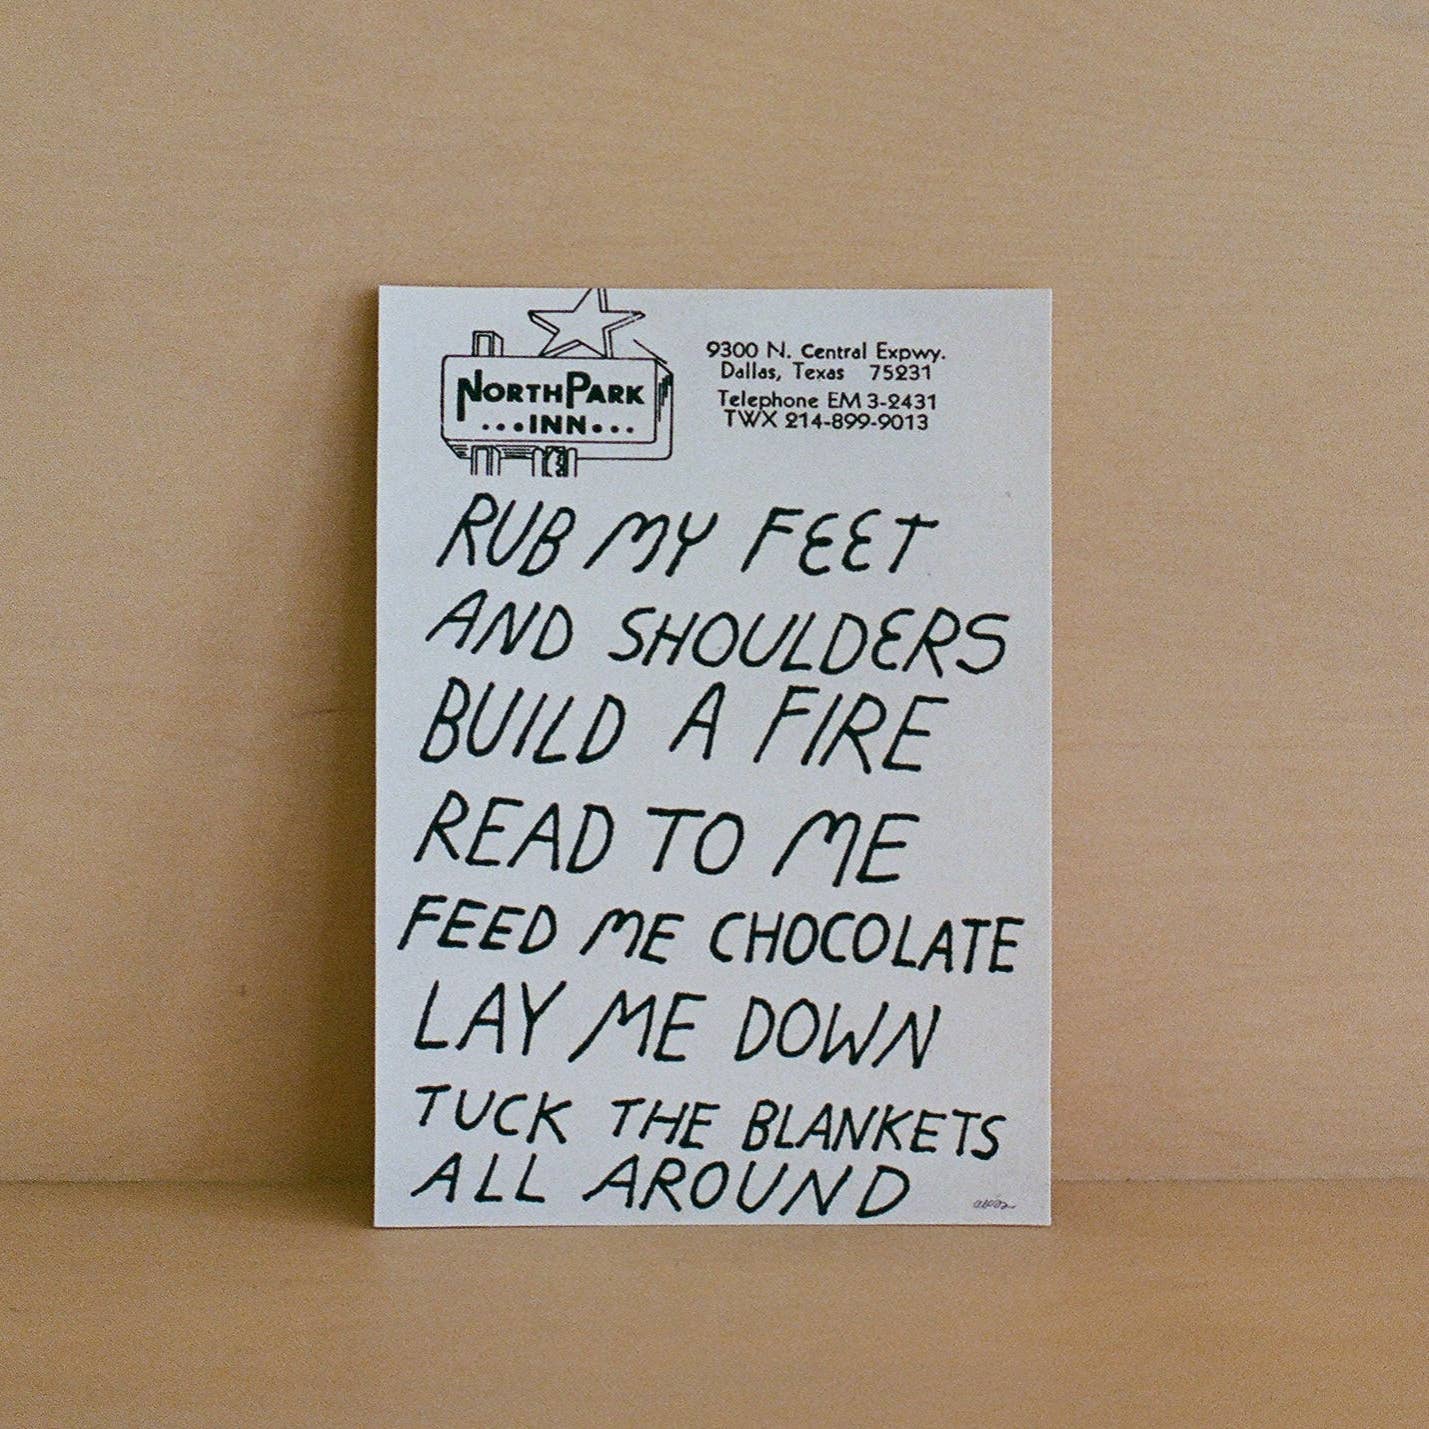 NORTHPARK
...INN...
9300 N. Central Expwy.
Dallas, Texas 75231
Telephone EM 3-2431
TWX 214-899-9013
RUB MY FEET
AND SHOULDERS
BUILD A FIRE
READ TO ME
FEED ME CHOCOLATE
LAY ME DOWN
TUCK THE BLANKETS
ALL AROUND